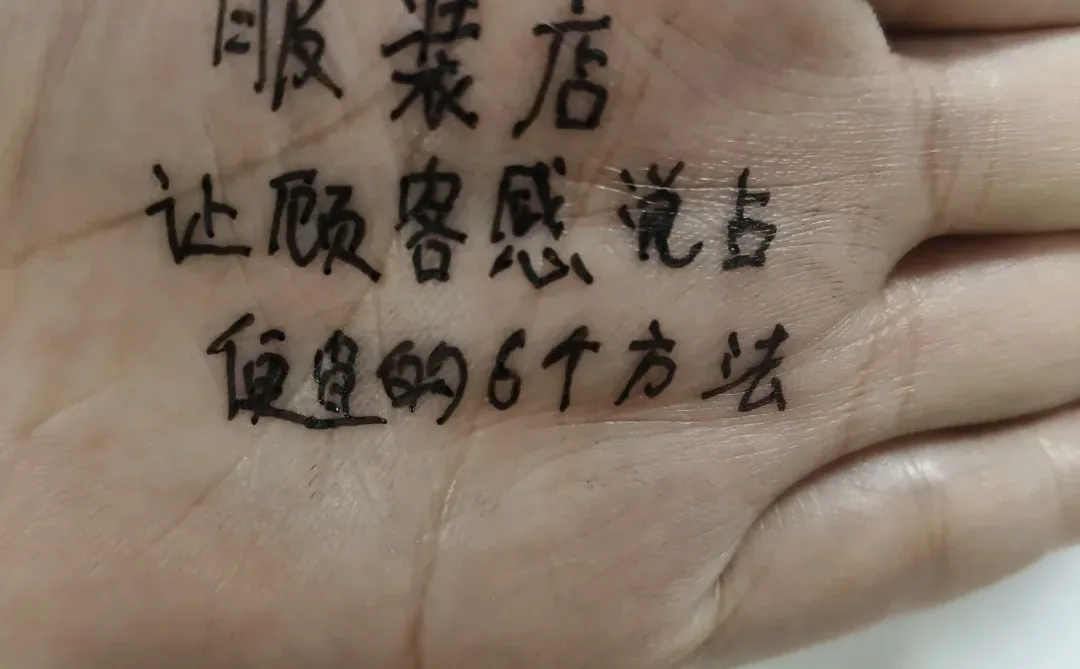 服装店
让顾客感觉占
便宜的6个方法